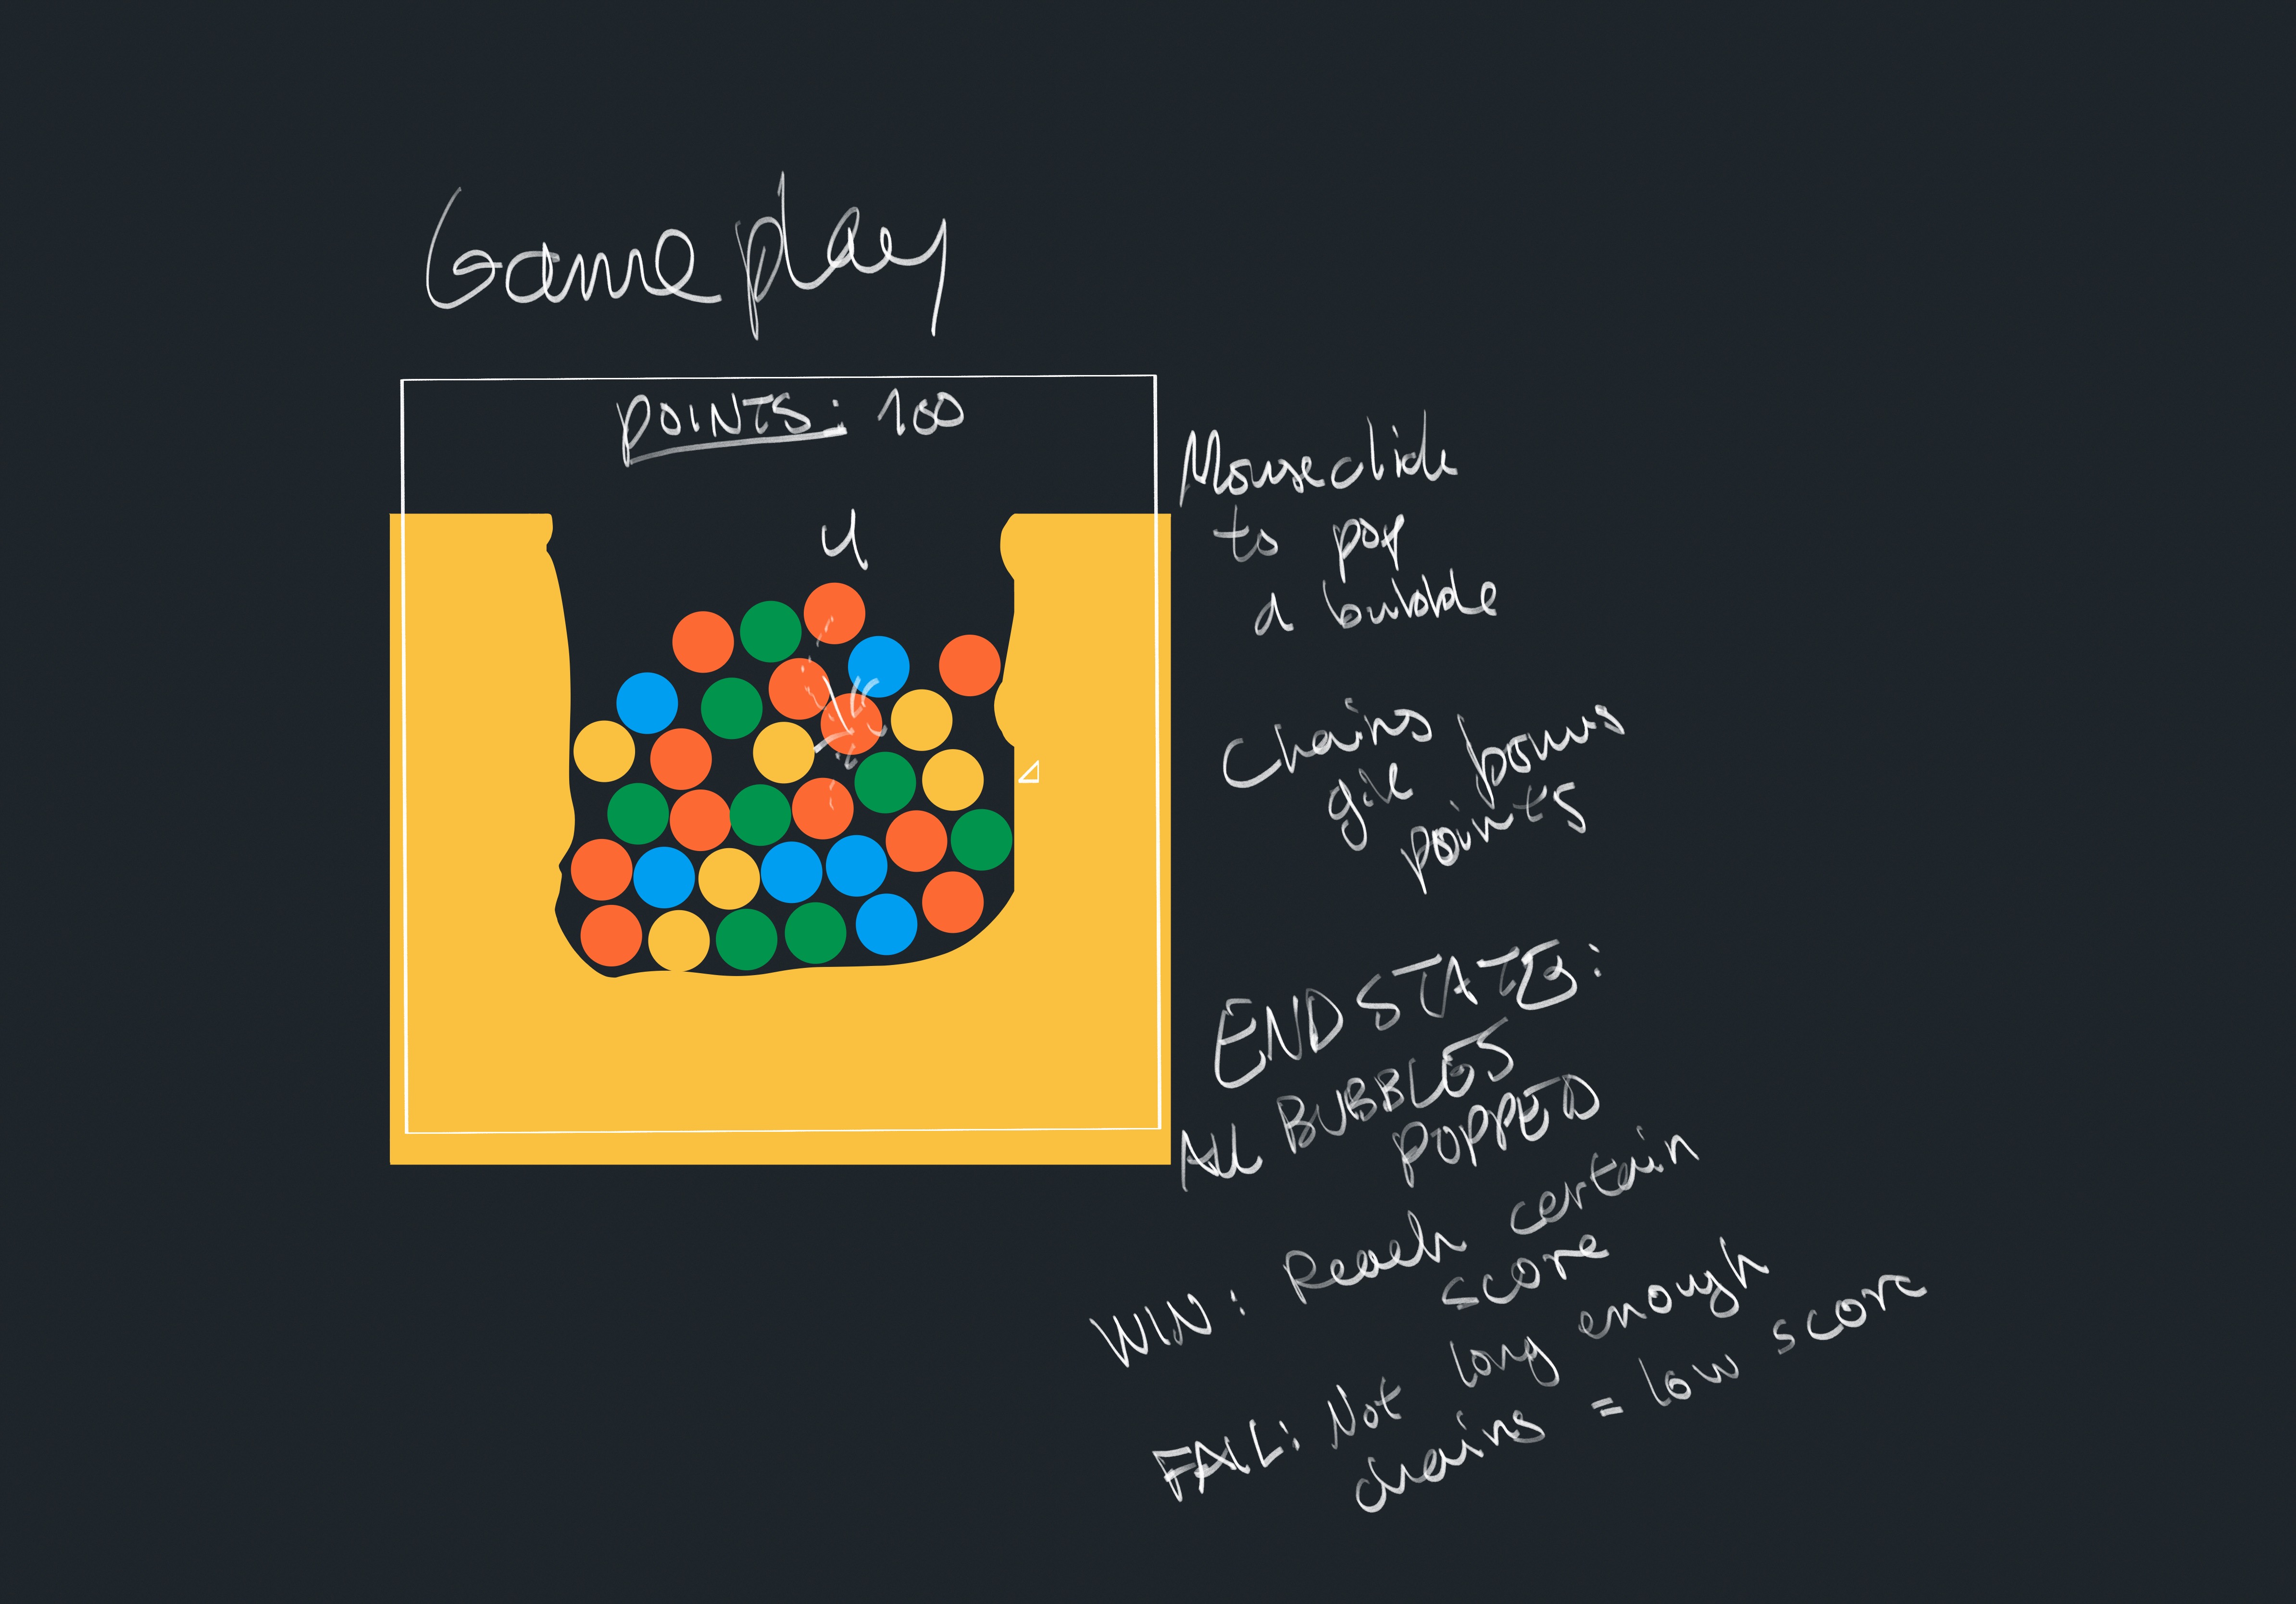 Gameplay
POINTS: 100
4
Mouseclick
to pop
a bubble
Chains
give bonus
points
END STATES:
ALL BUBBLES
POPPED
WIN: Reach certain
score
FAIL: Not long enough
chains = low score